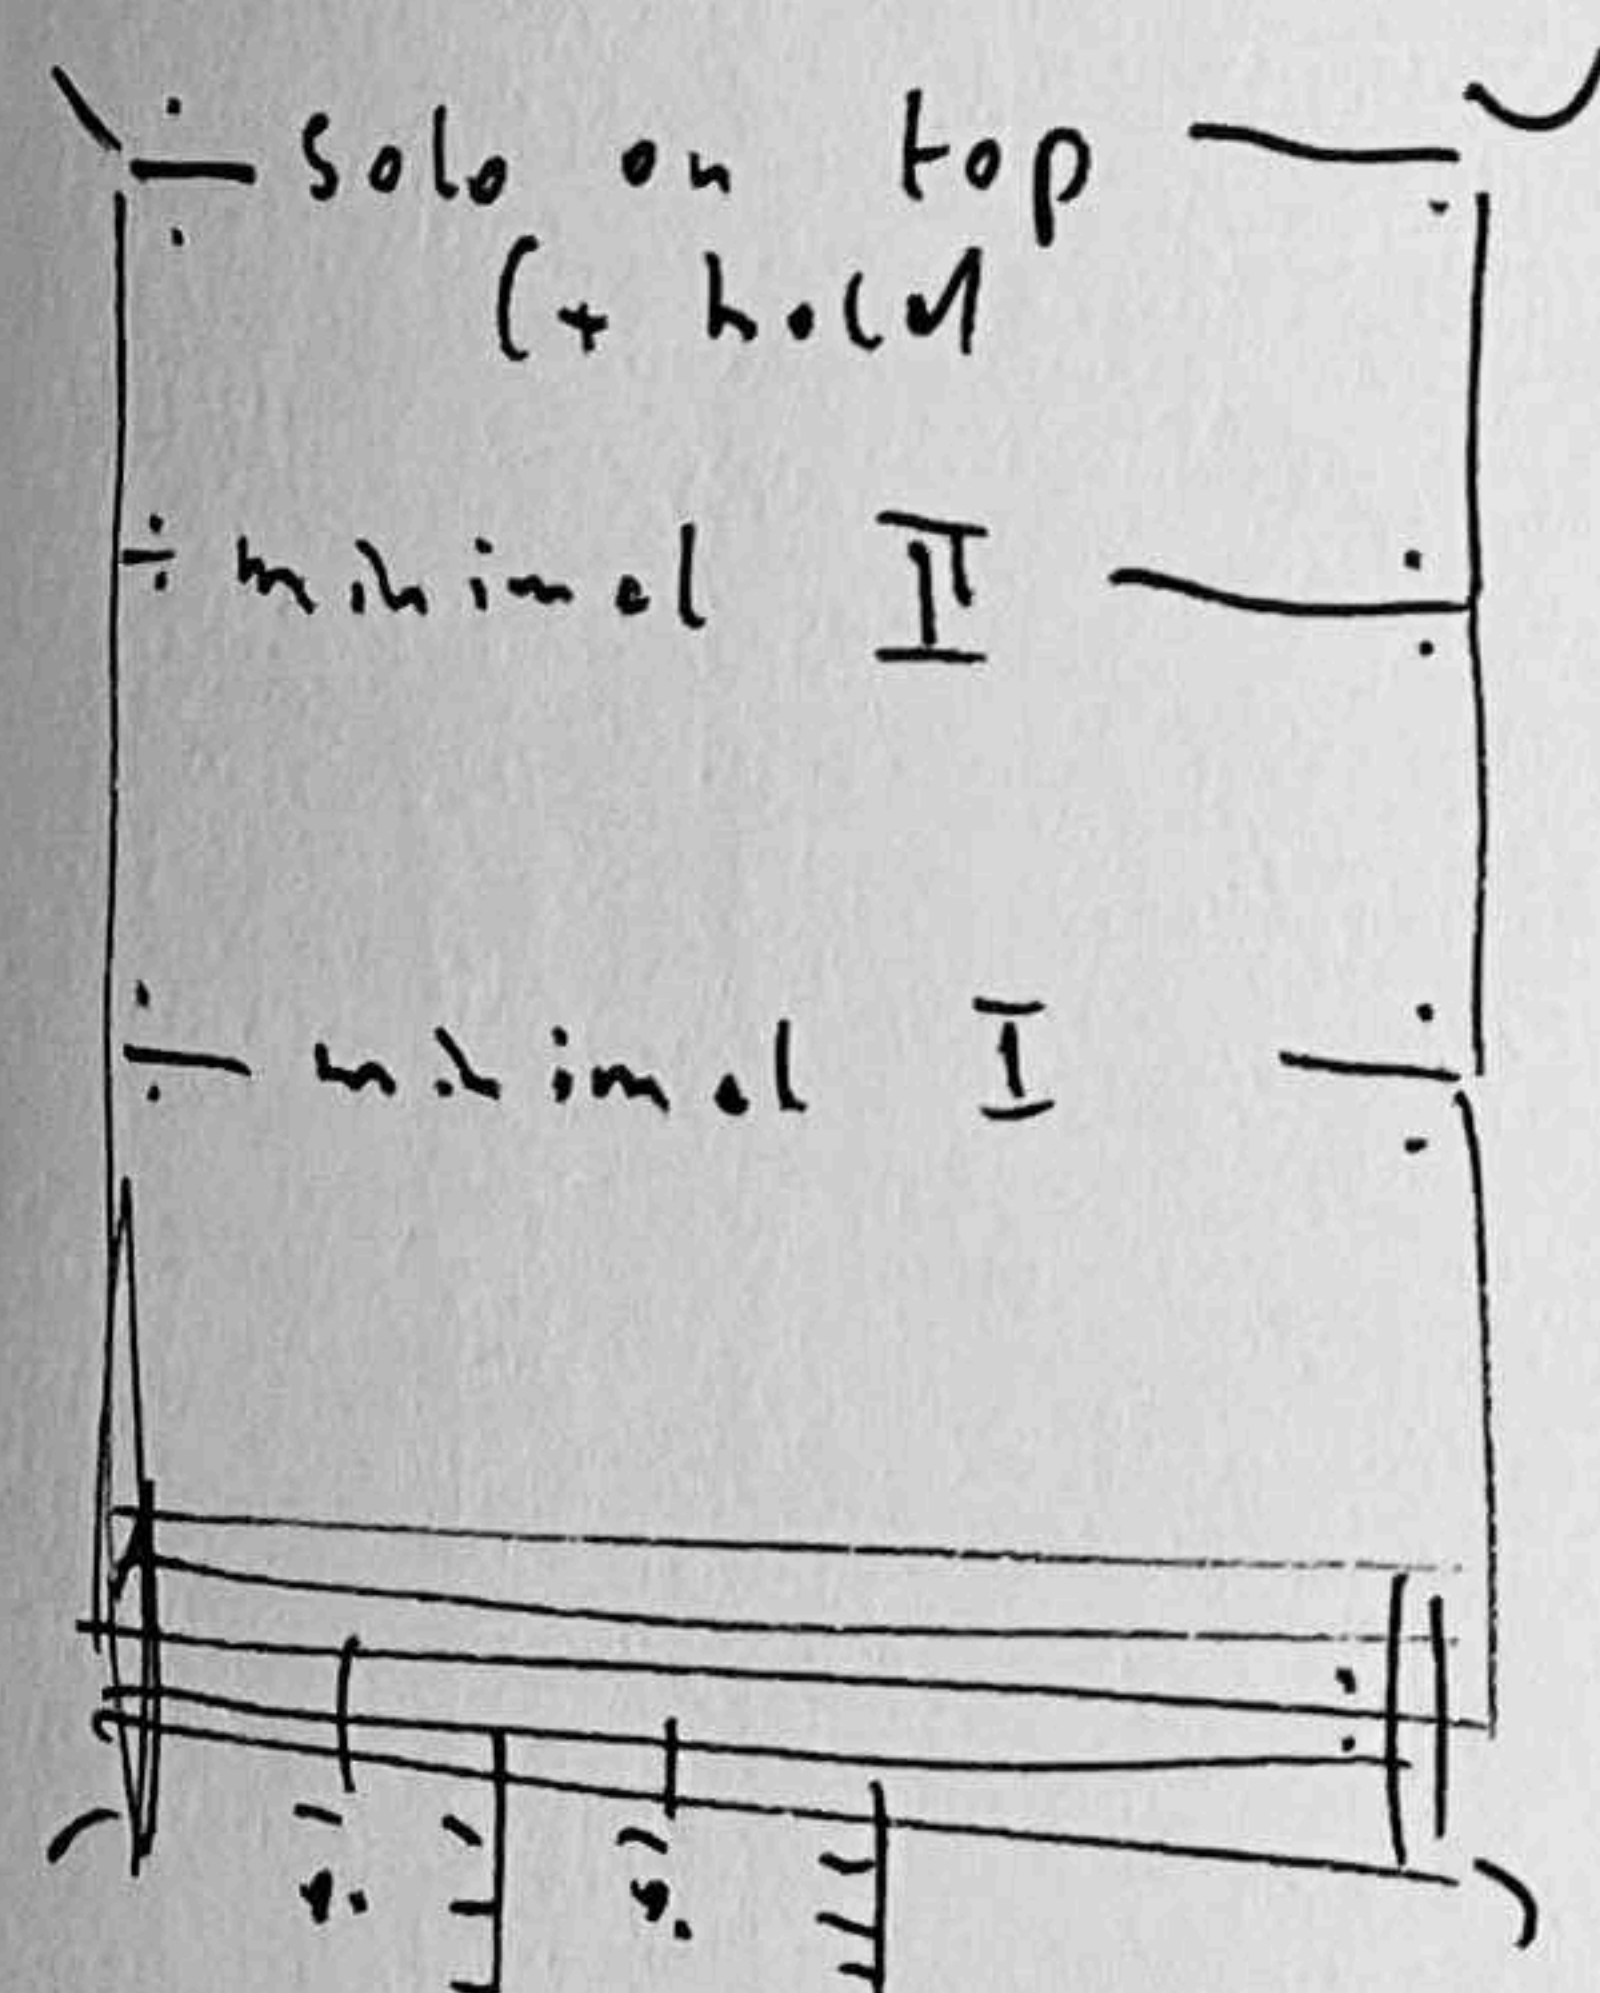 solo on top
(+ hold
minimal II
minimal I